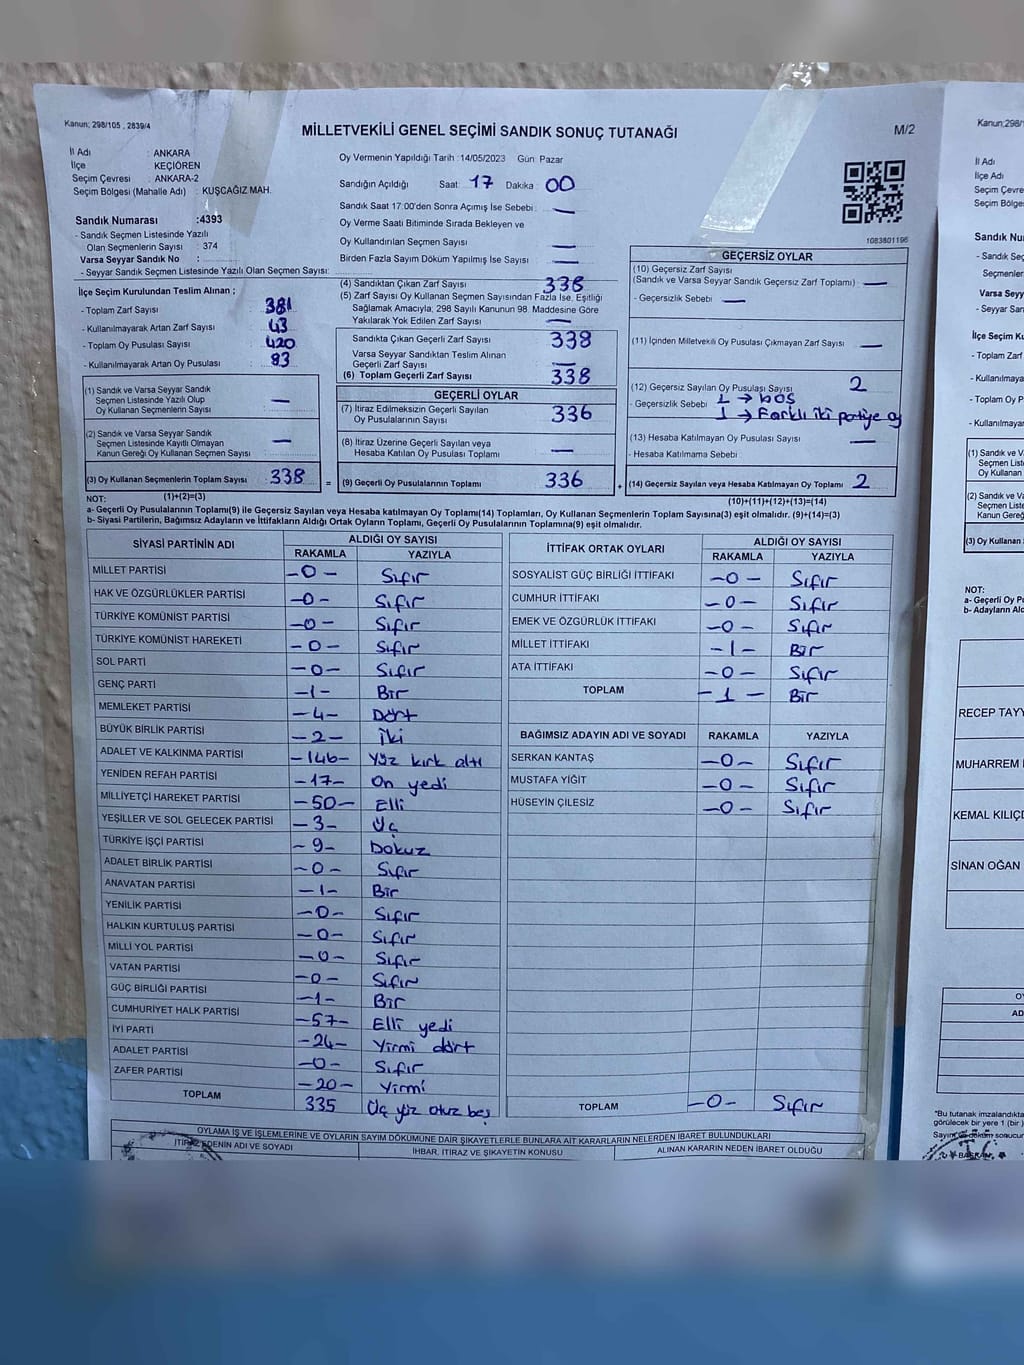 Kanun; 298/105 , 2839/4
MİLLETVEKİLİ GENEL SEÇİMİ SANDIK SONUÇ TUTANAĞI
M/2
İl Adı : ANKARA
İlçe KEÇİÖREN
Seçim Çevresi : ANKARA-2
Seçim Bölgesi (Mahalle Adı) : KUŞCAĞIZ MAH.
Sandık Numarası :4393
- Sandık Seçmen Listesinde Yazılı
Olan Seçmenlerin Sayısı : 374
Varsa Seyyar Sandık No :
- Seyyar Sandık Seçmen Listesinde Yazılı Olan Seçmen Sayısı:
Oy Vermenin Yapıldığı Tarih :14/05/2023 Gün: Pazar
Sandığın Açıldığı Saat: 17 Dakika: 00
Sandık Saat 17:00'den Sonra Açımış İse Sebebi : —
Oy Verme Saati Bitiminde Sırada Bekleyen ve
Oy Kullandırılan Seçmen Sayısı —
Birden Fazla Sayım Döküm Yapılmış İse Sayısı —
1083801196
İlçe Seçim Kurulundan Teslim Alınan ;
- Toplam Zarf Sayısı : 381
- Kullanılmayarak Artan Zarf Sayısı : 43
- Toplam Oy Pusulası Sayısı : 420
- Kullanılmayarak Artan Oy Pusulası : 83
(1) Sandık ve Varsa Seyyar Sandık
Seçmen Listesinde Yazılı Olup
Oy Kullanan Seçmenlerin Sayısı —
(2) Sandık ve Varsa Seyyar Sandık
Seçmen Listesinde Kayıtlı Olmayan
Kanun Gereği Oy Kullanan Seçmen Sayısı —
(3) Oy Kullanan Seçmenlerin Toplam Sayısı 338
(1)+(2)=(3)
(4) Sandıktan Çıkan Zarf Sayısı 338
(5) Zarf Sayısı Oy Kullanan Seçmen Sayısından Fazla İse, Eşitliği
Sağlamak Amacıyla; 298 Sayılı Kanunun 98. Maddesine Göre
Yakılarak Yok Edilen Zarf Sayısı —
Sandıkta Çıkan Geçerli Zarf Sayısı 338
Varsa Seyyar Sandıktan Teslim Alınan
Geçerli Zarf Sayısı —
(6) Toplam Geçerli Zarf Sayısı 338
GEÇERLİ OYLAR
(7) İtiraz Edilmeksizin Geçerli Sayılan
Oy Pusulasının Sayısı 336
(8) İtiraz Üzerine Geçerli Sayılan veya
Hesaba Katılan Oy Pusulası Toplamı —
= (9) Geçerli Oy Pusulalarının Toplamı 336
GEÇERSİZ OYLAR
(10) Geçersiz Zarf Sayısı
(Sandık ve Varsa Seyyar Sandık Geçersiz Zarf Toplamı) —
- Geçersizlik Sebebi —
(11) İçinden Milletvekili Oy Pusulası Çıkmayan Zarf Sayısı —
(12) Geçersiz Sayılan Oy Pusulası Sayısı 2
- Geçersizlik Sebebi 1 → boş
1 → Farklı iki partiye oy
(13) Hesaba Katılmayan Oy Pusulası Sayısı —
- Hesaba Katılmama Sebebi
+ (14) Geçersiz Sayılan veya Hesaba Katılmayan Oy Toplamı 2
(10)+(11)+(12)+(13)=(14)
NOT:
a- Geçerli Oy Pusulalarının Toplamı(9) ile Geçersiz Sayılan veya Hesaba Katılmayan Oy Toplamı(14) Toplamları, Oy Kullanan Seçmenlerin Toplam Sayısına(3) eşit olmalıdır. (9)+(14)=(3)
b- Siyasi Partilerin, Bağımsız Adayların ve İttifakların Aldığı Ortak Oyların Toplamı, Geçerli Oy Pusulalarının Toplamına(9) eşit olmalıdır.
SİYASİ PARTİNİN ADI ALDIĞI OY SAYISI
RAKAMLA YAZIYLA
MİLLET PARTİSİ –0– Sıfır
HAK VE ÖZGÜRLÜKLER PARTİSİ –0– Sıfır
TÜRKİYE KOMÜNİST PARTİSİ –0– Sıfır
TÜRKİYE KOMÜNİST HAREKETİ –0– Sıfır
SOL PARTİ –0– Sıfır
GENÇ PARTİ –1– Bir
MEMLEKET PARTİSİ –4– Dört
BÜYÜK BİRLİK PARTİSİ –2– İki
ADALET VE KALKINMA PARTİSİ –146– Yüz kırk altı
YENİDEN REFAH PARTİSİ –17– On yedi
MİLLİYETÇİ HAREKET PARTİSİ –50– Elli
YEŞİLLER VE SOL GELECEK PARTİSİ –3– Üç
TÜRKİYE İŞÇİ PARTİSİ –9– Dokuz
ADALET BİRLİK PARTİSİ –0– Sıfır
ANAVATAN PARTİSİ –1– Bir
YENİLİK PARTİSİ –0– Sıfır
HALKIN KURTULUŞ PARTİSİ –0– Sıfır
MİLLİ YOL PARTİSİ –0– Sıfır
VATAN PARTİSİ –0– Sıfır
GÜÇ BİRLİĞİ PARTİSİ –1– Bir
CUMHURİYET HALK PARTİSİ –57– Elli yedi
İYİ PARTİ –24– Yirmi dört
ADALET PARTİSİ –0– Sıfır
ZAFER PARTİSİ –20– Yirmi
TOPLAM 335 Üç yüz otuz beş
İTTİFAK ORTAK OYLARI ALDIĞI OY SAYISI
RAKAMLA YAZIYLA
SOSYALİST GÜÇ BİRLİĞİ İTTİFAKI –0– Sıfır
CUMHUR İTTİFAKI –0– Sıfır
EMEK VE ÖZGÜRLÜK İTTİFAKI –0– Sıfır
MİLLET İTTİFAKI –1– Bir
ATA İTTİFAKI –0– Sıfır
TOPLAM –1– Bir
BAĞIMSIZ ADAYIN ADI VE SOYADI RAKAMLA YAZIYLA
SERKAN KANTAŞ –0– Sıfır
MUSTAFA YİĞİT –0– Sıfır
HÜSEYİN ÇİLESİZ –0– Sıfır
TOPLAM –0– Sıfır
OYLAMA İŞ VE İŞLEMLERİNE VE OYLARIN SAYIM DÖKÜMÜNE DAİR ŞİKAYETLERLE BUNLARA AİT KARARLARIN NELERDEN İBARET BULUNDUKLARI
İTİRAZ EDENİN ADI VE SOYADI İHBAR, İTİRAZ VE ŞİKAYETİN KONUSU ALINAN KARARIN NEDEN İBARET OLDUĞU
Kanun;298/1
İl Adı
İlçe Adı
Seçim Çevre
Seçim Bölges
Sandık Nu
- Sandık Seç
Seçmenler
Varsa Seyya
- Seyyar San
İlçe Seçim K
- Toplam Zarf
- Kullanılmaya
- Toplam O
- Kullanılmaya
(1) Sandık ve Va
Seçmen List
Oy Kullanan
(2) Sandık ve
Seçmen L
Kanun Gereğ
(3) Oy Kullanan
NOT:
a- Geçerli O
b- Adayların Ald
RECEP TAYY
MUHARREM İ
KEMAL KILIÇD
SİNAN OĞAN
OY
AD
"Bu tutanak imzalandıkta
görülecek bir yere 1 (bir )
Sayım ve döküm sonucu
BAŞKAN